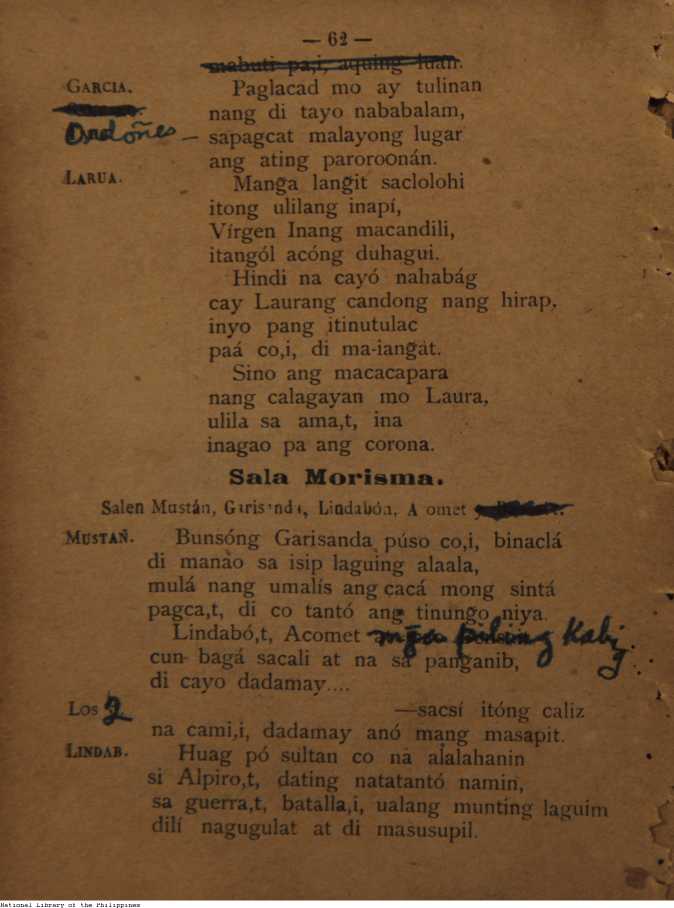 — 62 —
mabuti pa,i, aquing
GARCIA. Paglacad mo ay tulinan
nang di tayo nababalam,
Ordoñes — sapagcat malayong lugar
ang ating paroroonán.
LARUA. Mang̃a lang̃it saclolohi
itong ulilang inapí,
Vírgen Inang macandili,
itangól acóng duhagui.
Hindi na cayó nahabág
cay Laurang candong nang hirap,
inyo pang itinutulac
paá co,i, di ma-iang̃at.
Sino ang macacapara
nang calagayan mo Laura,
ulila sa ama,t, ina
inagao pa ang corona.
Sala Morisma.
Salen Mustán, Garisanda, Lindabón, Acomet
MUSTAÑ. Bunsóng Garisanda púso co,i, binaclá
di manào sa isip laguing alaala,
mulá nang umalís ang cacá mong sintá
pagca,t, di co tantó ang tinung̃o niya.
Lindabó,t, Acomet mga piling Kabig
cun bagá sacali at na sa pang̃anib,
di cayo dadamay....
Los 2 —sacsí itóng caliz
na cami,i, dadamay anó mang masapit.
LINDAB. Huag pó sultan co na alalahanin
si Alpiro,t, dating natatantó namin,
sa guerra,t, batalla,i, ualang munting laguim
dilí nagugulat at di masusupil.
National Library of the Philippines